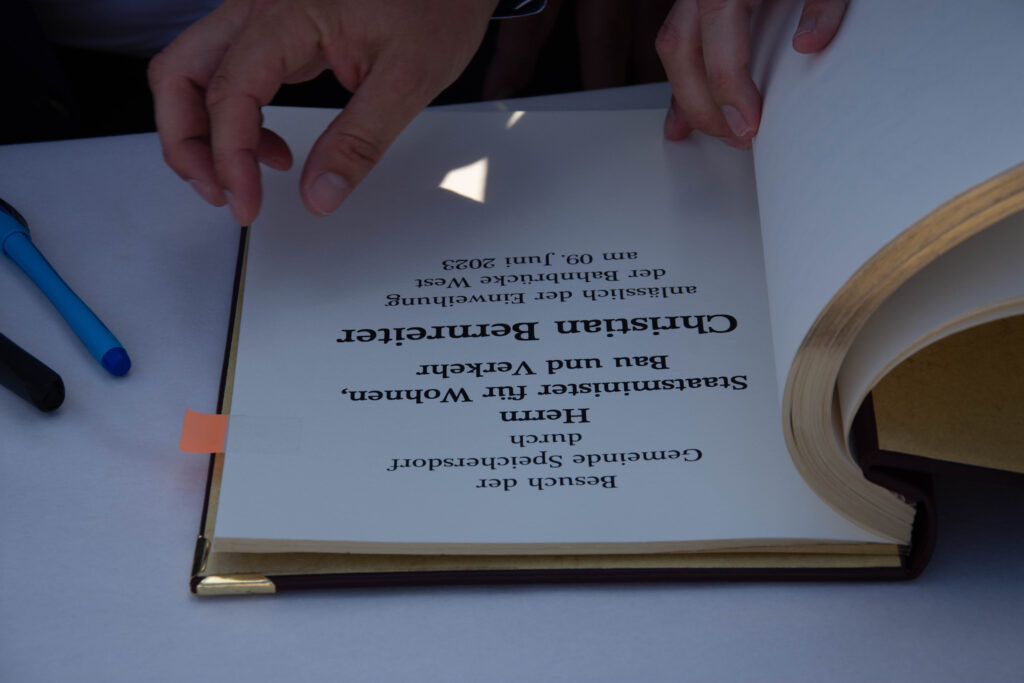 Besuch der
Gemeinde Speichersdorf
durch
Herrn
Staatsminister für Wohnen,
Bau und Verkehr
Christian Bernreiter
anlässlich der Einweihung
der Bahnbrücke West
am 09. Juni 2023